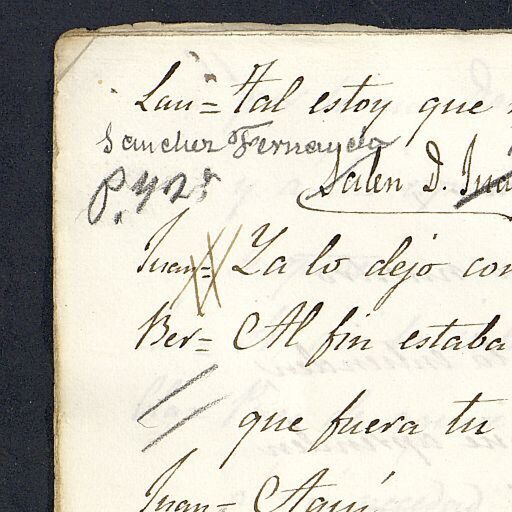 Lau= Tal estoy que
Sanchez Fernando
P. 42
Salen D. Jua
Juan= Ya lo dejo con
Ber= Al fin estaba
que fuera tu
Juan= Aquí